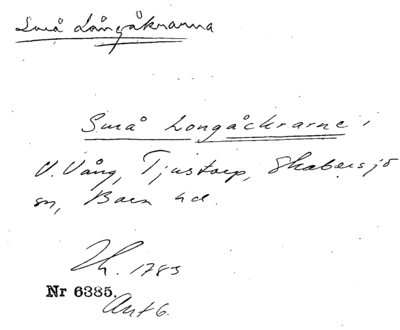 Små Långåkrarna
Små Longåckrarne i
V. Vång, Tjustorp, Skabersjö
sn, Bara hd.
Zh. 1783
Nr 6385.
Ant 6.